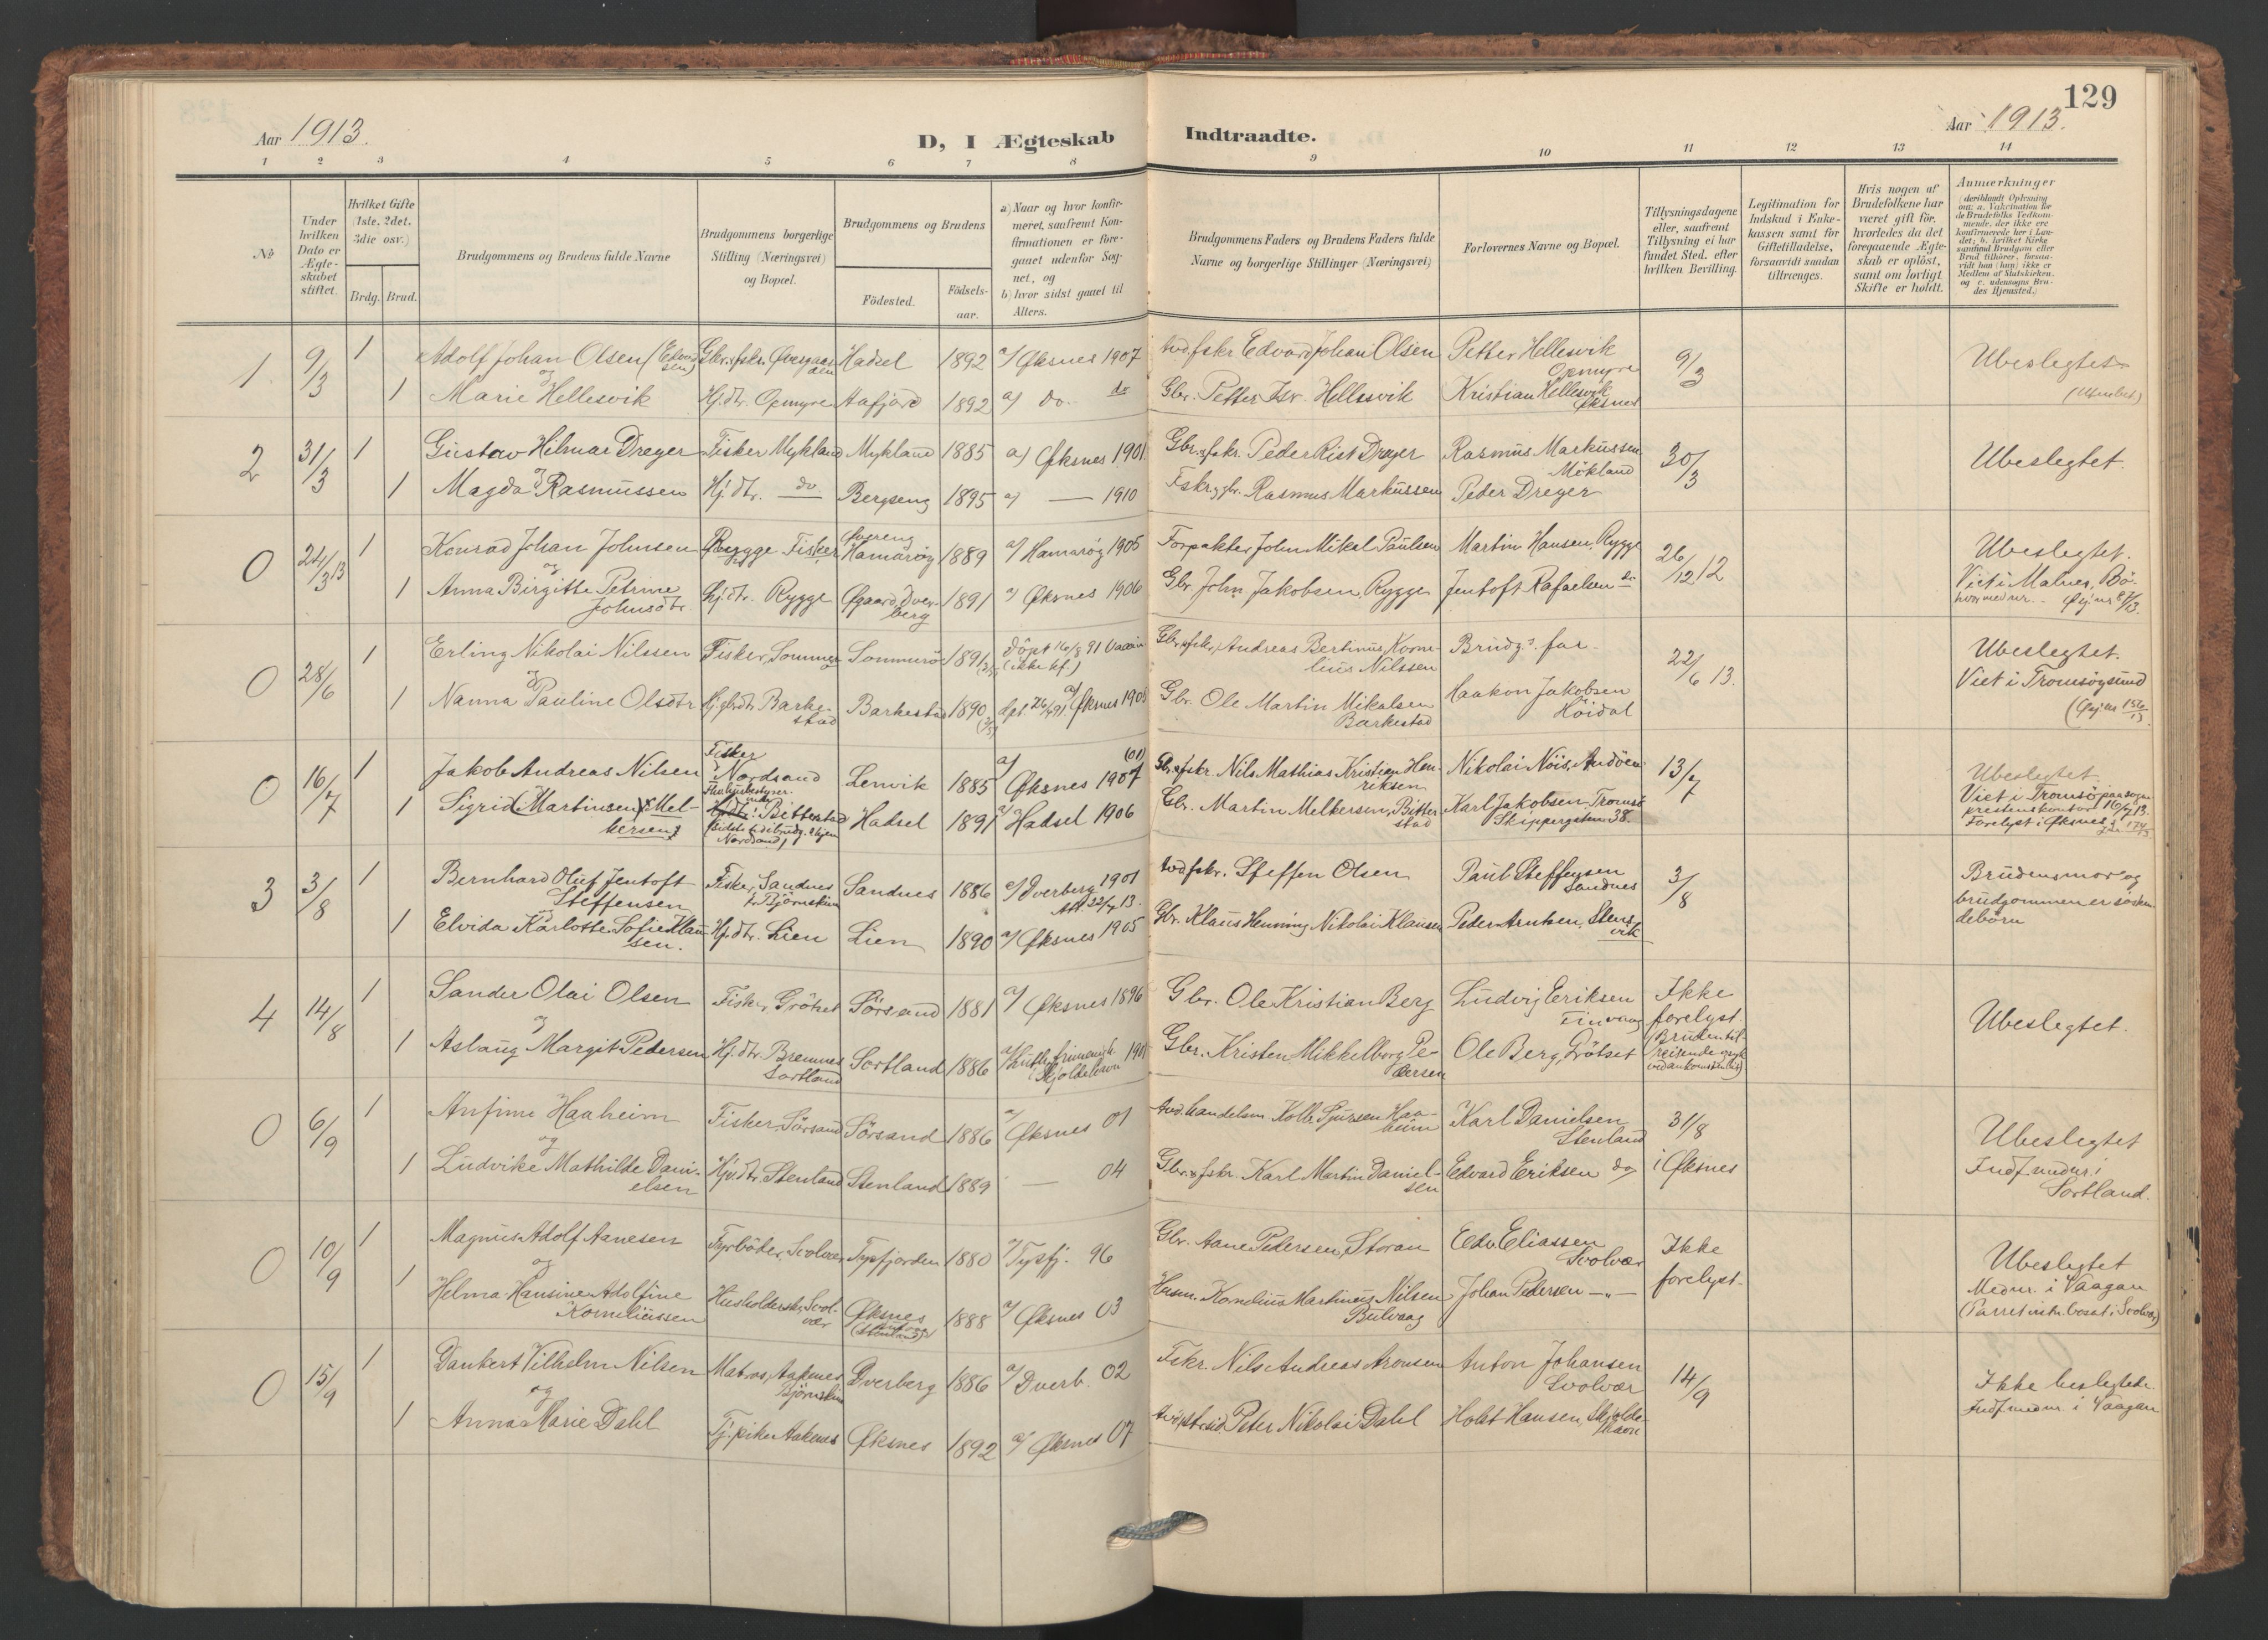 129
Aar 1913.
D, I Ægteskab Indtraadte.
Aar 1913.
1 2 3 4 5 6 7 8 9 10 11 12 13 14
No
Under hvilken Dato er Ægteskabet stiftet.
Hvilket Gifte (1ste, 2det, 3die osv.)
Brdg. Brud.
Brudgommens og Brudens fulde Navne
Brudgommens borgerlige Stilling (Næringsvei) og Bopæl.
Brudgommens og Brudens
Fødested.
Fødselsaar.
a) Naar og hvor konfirmeret, saafremt Konfirmationen er foregaaet udenfor Sognet, og
b) hvor sidst gaaet til Alters.
Brudgommens Faders og Brudens Faders fulde Navne og borgerlige Stillinger (Næringsvei)
Forlovernes Navne og Bopæl.
Tillysningsdagene eller, saafremt Tillysning ei har fundet Sted, efter hvilken Bevilling.
Legitimation for Indskud i Enkekassen samt for Giftetilladelse, forsaavidt saadan tiltrænges.
Hvis nogen af Brudefolkene har været gift før, hvorledes da det foregaaende Ægteskab er opløst, samt om lovligt Skifte er holdt.
Anmerkninger
(deriblandt Oplysning om: a. Vakcination for de Brudefolks Vedkommende, der ikke ere konfirmerede her i Landet; b. hvilket Kirkesamfund Brudgom eller Brud tilhører, forsaavidt han (hun) ikke er Medlem af Statskirken, og c. udensogns Brudes Hjemsted.)
1. 9/3 1 Adolf Johan Olsen (Edvardsen) Gbr. & fskr. Øvergaarden Hadsel 1892 a/ Øksnes 1907 avd fskr Edvard Johan Olsen Petter Hellesvik Opmyre 9/3 Ubeslegtet
og
1 Marie Hellesvik Hj. dtr. Opmyre Aafjord 1892 a/ do. do Gbr. Petter Isr. Hellesvik Kristian Hellesvik Øksnes
2 31/3 1 Gustav Hilmar Dreyer Fisker Mykland Mykland 1885 a) Øksnes 1901 Gbr. & fskr. Peder Rist Dreyer Rasmus Markussen Mökland 30/3 Ubeslegtet.
og
1 Magda Rasmussen Hj. dtr. do Bergseng 1895 a) — 1910 Fskr. & gbr. Rasmus Markussen Peder Dreyer
0 24/3 13 1 Konrad Johan Johnsen Rygge Fisker Hamarøy 1889 a/ Hamarøy 1905 Forpakter John Mikal Paulsen Martin Hansen, Rygge 26/12 12 Ubeslegtet.
og
1 Anna Birgitte Petrine Johnsdtr. Hj. dtr. Rygge Øgaard, Dverberg 1891 a/ Øksnes 1906 Gbr. John Jakobsen, Rygge Jentoft Rafaelsen do Viet i Malnes, Bö.
0 28/6 1 Erling Nikolai Nilssen Fisker, Sommerø Sommerö 1891 döpt 16/8 91 (ikke kf.) Gbr. & fskr. Andreas Bertinus Kornelius Nilssen Brudg.s far 22/6 13. Ubeslegtet.
og
1 Nanna Pauline Olsdtr Hj. gbrdtr. Barkestad Barkestad 1890 dpt. 26/4 91. a/ Øksnes 1905 Gbr. Ole Martin Mikalsen Barkestad Haakon Jakobsen Höidal Viet i Tromsøysund
0 16/7 1 Jakob Andreas Nilsen Fisker Nordsand Lenvik 1885 a/ Øksnes 1907 (01) Gbr. & fskr. Nils Mathias Kristian Henriksen Nikolai Nöis, Andöen 13/7 Ubeslegtet.
1 Sigrid (Martinsen) Melkersen Bitterstad Hadsel 1891 a/ Hadsel 1906 Gbr. Martin Melkersen, Bitterstad Karl Jakobsen, Tromsö Skippergaten 38. Viet i Tromsö
Forelyst i Øksnes
3 3/8 1 Bernhard Oluf Jentoft Steffensen Fisker, Sandnes Björnskinn Sandnes 1886 a/ Dverberg 1901 Att. 22/7 13. avd fskr. Steffen Olsen Paul Steffensen Sandnes 3/8 Brudens mor og brudgommen er søskendebörn
og
1 Elvida Karlotte Sofie Klausen. Hj. dtr. Lien Lien 1890 a/ Øksnes 1905 Gbr. Klaus Henning Nikolai Klausen Peder Arntsen, Stensvik
4 14/8 1 Sander Olai Olsen Fisker, Grötset Sörsand 1881 a/ Øksnes 1896 Gbr. Ole Kristian Berg Ludvig Eriksen Tinvaag Ikke forelyst.
og
1 Aslaug Margit Pedersen Hj. dtr. Bremnes Sortland Sortland 1886 a/ Luth. frimenigh. i Skjoldehavn 1901 Gbr. Kristen Mikkelborg Pedersen Ole Berg, Grötset (Bruden tilreisende Ubeslegtet.
0 6/9 1 Anfinn Haaheim Fisker, Sörsand Sörsand 1886 a/ Øksnes 01 Avd. handelsm. Kolb. Sjursen Haaheim Karl Danielsen Stenland 31/8 Ubeslegtet
og
1 Ludvike Mathilde Danielsen Hj. dtr. Stenland Stenland 1889 — 04 Gbr. & fskr. Karl Martin Danielsen Edvard Eriksen do i Øksnes Indf. under i Sortland.
0 10/9 1 Magnus Adolf Aanesen Fyrböter, Svolvær Tysfjorden 1880 a/ Tysfj. 96 Gbr. Aane Pedersen, Storaa Edv. Eliassen Svolvær Ikke forelyst. Ubeslegtet
og
1 Helma Hansine Adolfine Korneliussen Husholderske, Svolvær Øksnes 1888 a/ Øksnes 03 Husm. Kornelius Martinus Nilsen Bulvaag Johan Pedersen —"— Mednr. i Vaagan (Parret midl. bosat i Svolvær)
0 15/9 1 Dankert Vilhelm Nilsen Matros, Aaknes Björnskinn Dverberg 1886 a/ Dverb. 02 Fskr. Nils Andreas Aronsen Anton Johansen Svolvær 14/9 Ikke beslegtede.
og
1 Anna Marie Dahl Tj. pike Aaknes Øksnes 1892 a/ Øksnes 07 Peter Nikolai Dahl Holst Hansen, Skjoldehavn Indf. mednr. i Vaagan